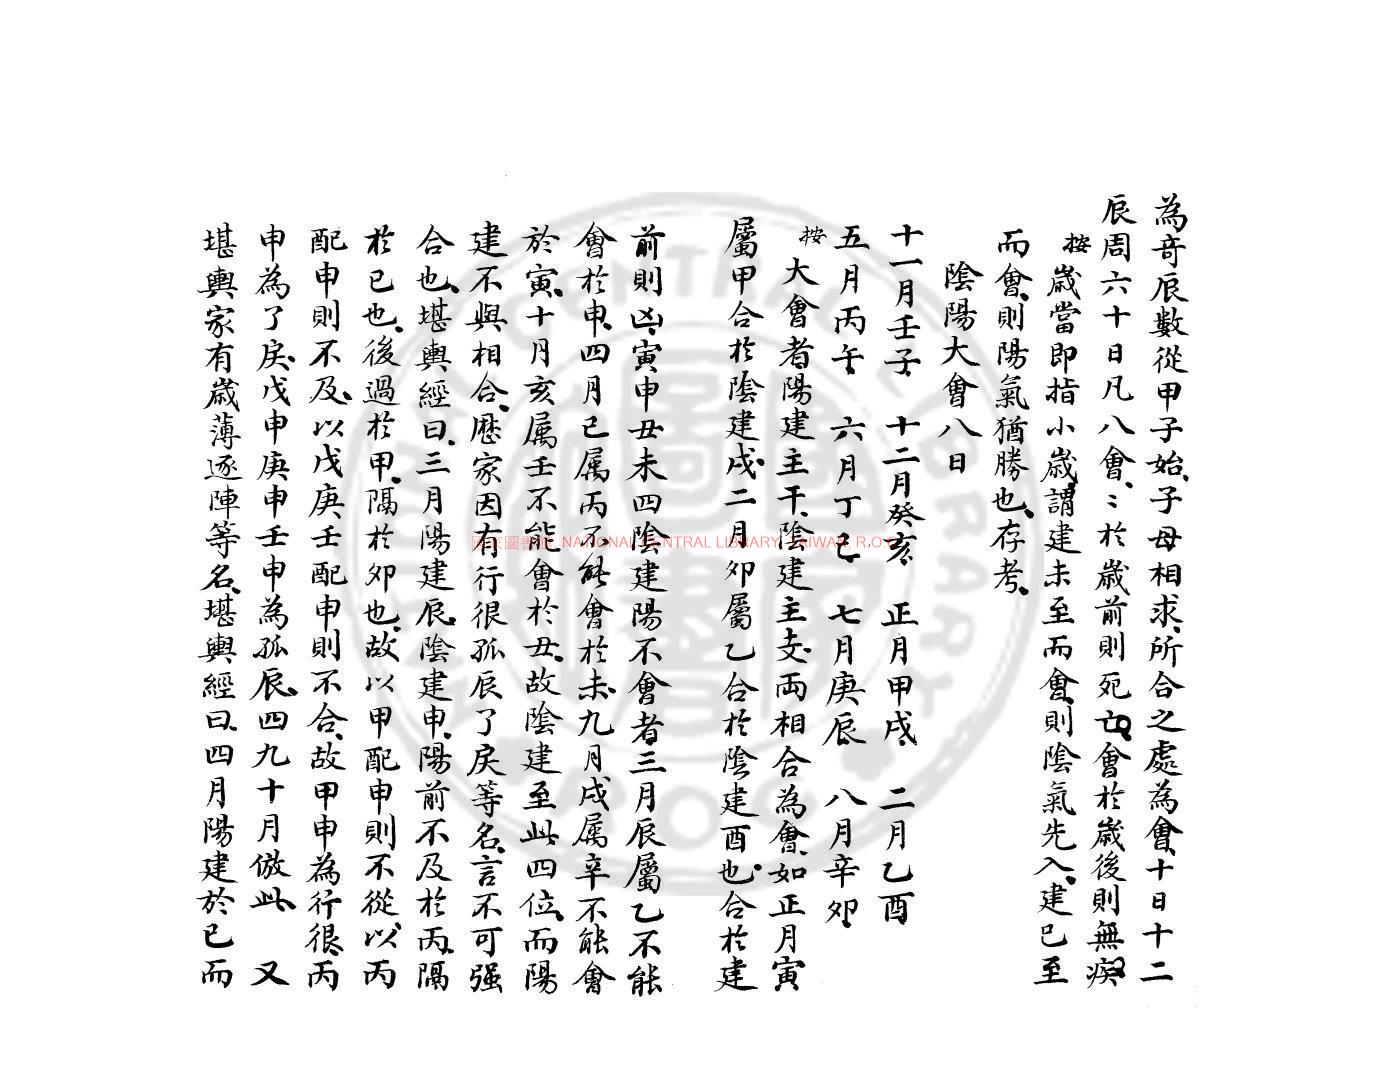 為奇辰數從甲子始、子母相求、所合之處為會、十日十二
辰周六十日凡八會、〻於歲前則死亡、會於歲後則無疾
按歲當即指小歲、謂建未至而會、則陰氣先入、建已至
而會、則陽氣猶勝也、存考、
陰陽大會八日
十一月壬子 十二月癸亥、 正月甲戌、 二月乙酉
五月丙午、 六月丁巳、 七月庚辰、 八月辛卯、
按大會者、陽建主干、陰建主支、両相合為會、如正月寅
屬甲合於陰建戌、二月卯屬乙合於陰建酉也、合於建
前則凶、寅申丑未四陰建陽不會者、三月辰屬乙不能
會於申、四月巳属丙不能會於未、九月戌属辛不能會
於寅、十月亥属壬不能會於丑、故陰建至此四位、而陽
建不與相合、歷家因有行很孤辰了戾等名、言不可强
合也、堪輿經曰、三月陽建辰、陰建申、陽前不及於丙、隔
於巳也、後過於甲、隔於卯也、故以甲配申則不從、以丙
配申則不及、以戊庚壬配申則不合、故甲申為行很、丙
申為了戾、戊申庚申壬申為孤辰、四九十月倣此、 又
堪輿家有歲薄逐陣等名、堪輿經曰、四月陽建於巳而
國家圖書館 NATIONAL CENTRAL LIBRARY, TAIWAN, R.O.C
NATIONAL CENTRAL LIBRARY R.O.C.